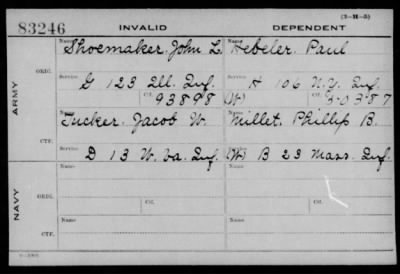 (3-M-5)
83246 INVALID DEPENDENT
Name Shoemaker, John L. Name Hebeler, Paul
ARMY ORIG. Service G 123 Ill. Inf. Service H 106 N.Y. Inf.
Ctf. 93898 (W) Ctf. 30387
Name Tucker, Jacob W. Name Millet, Phillip B.
CTF. Service D 13 W. Va. Inf. Service (W) B 23 Mass. Inf.
NAVY ORIG. Name Name
Service Service
Ctf. Ctf.
CTF. Name Name
Service Service